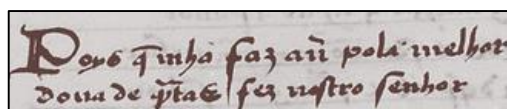 Poys q̃ mha faz aũ pola melhor
dona de q̃tas fez nostro senhor